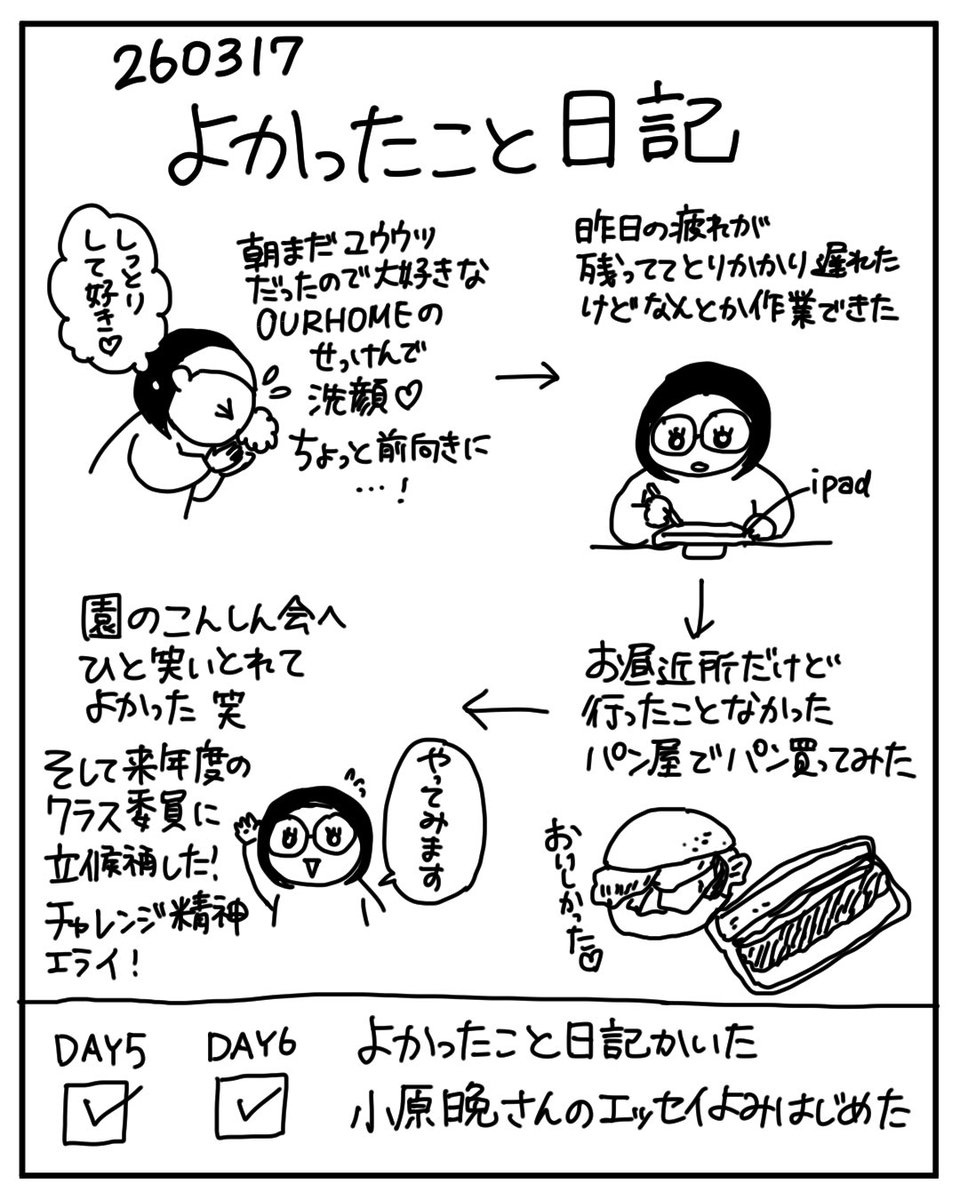 260317
よかったこと日記
しっとり
して好き♡
朝まだユウウツ
だったので大好きな
OURHOMEの
せっけんで
洗顔♡
ちょっと前向きに
…!
昨日の疲れが
残っててとりかかり遅れた
けどなんとか作業できた
ipad
お昼近所だけど
行ったことなかった
パン屋でパン買ってみた
おいしかった♡
園のこんしん会へ
ひと笑いとれて
よかった 笑
そして来年度の
クラス委員に
立候補した!
チャレンジ精神
エライ!
やってみます
DAY5
DAY6
よかったこと日記かいた
小原晩さんのエッセイよみはじめた